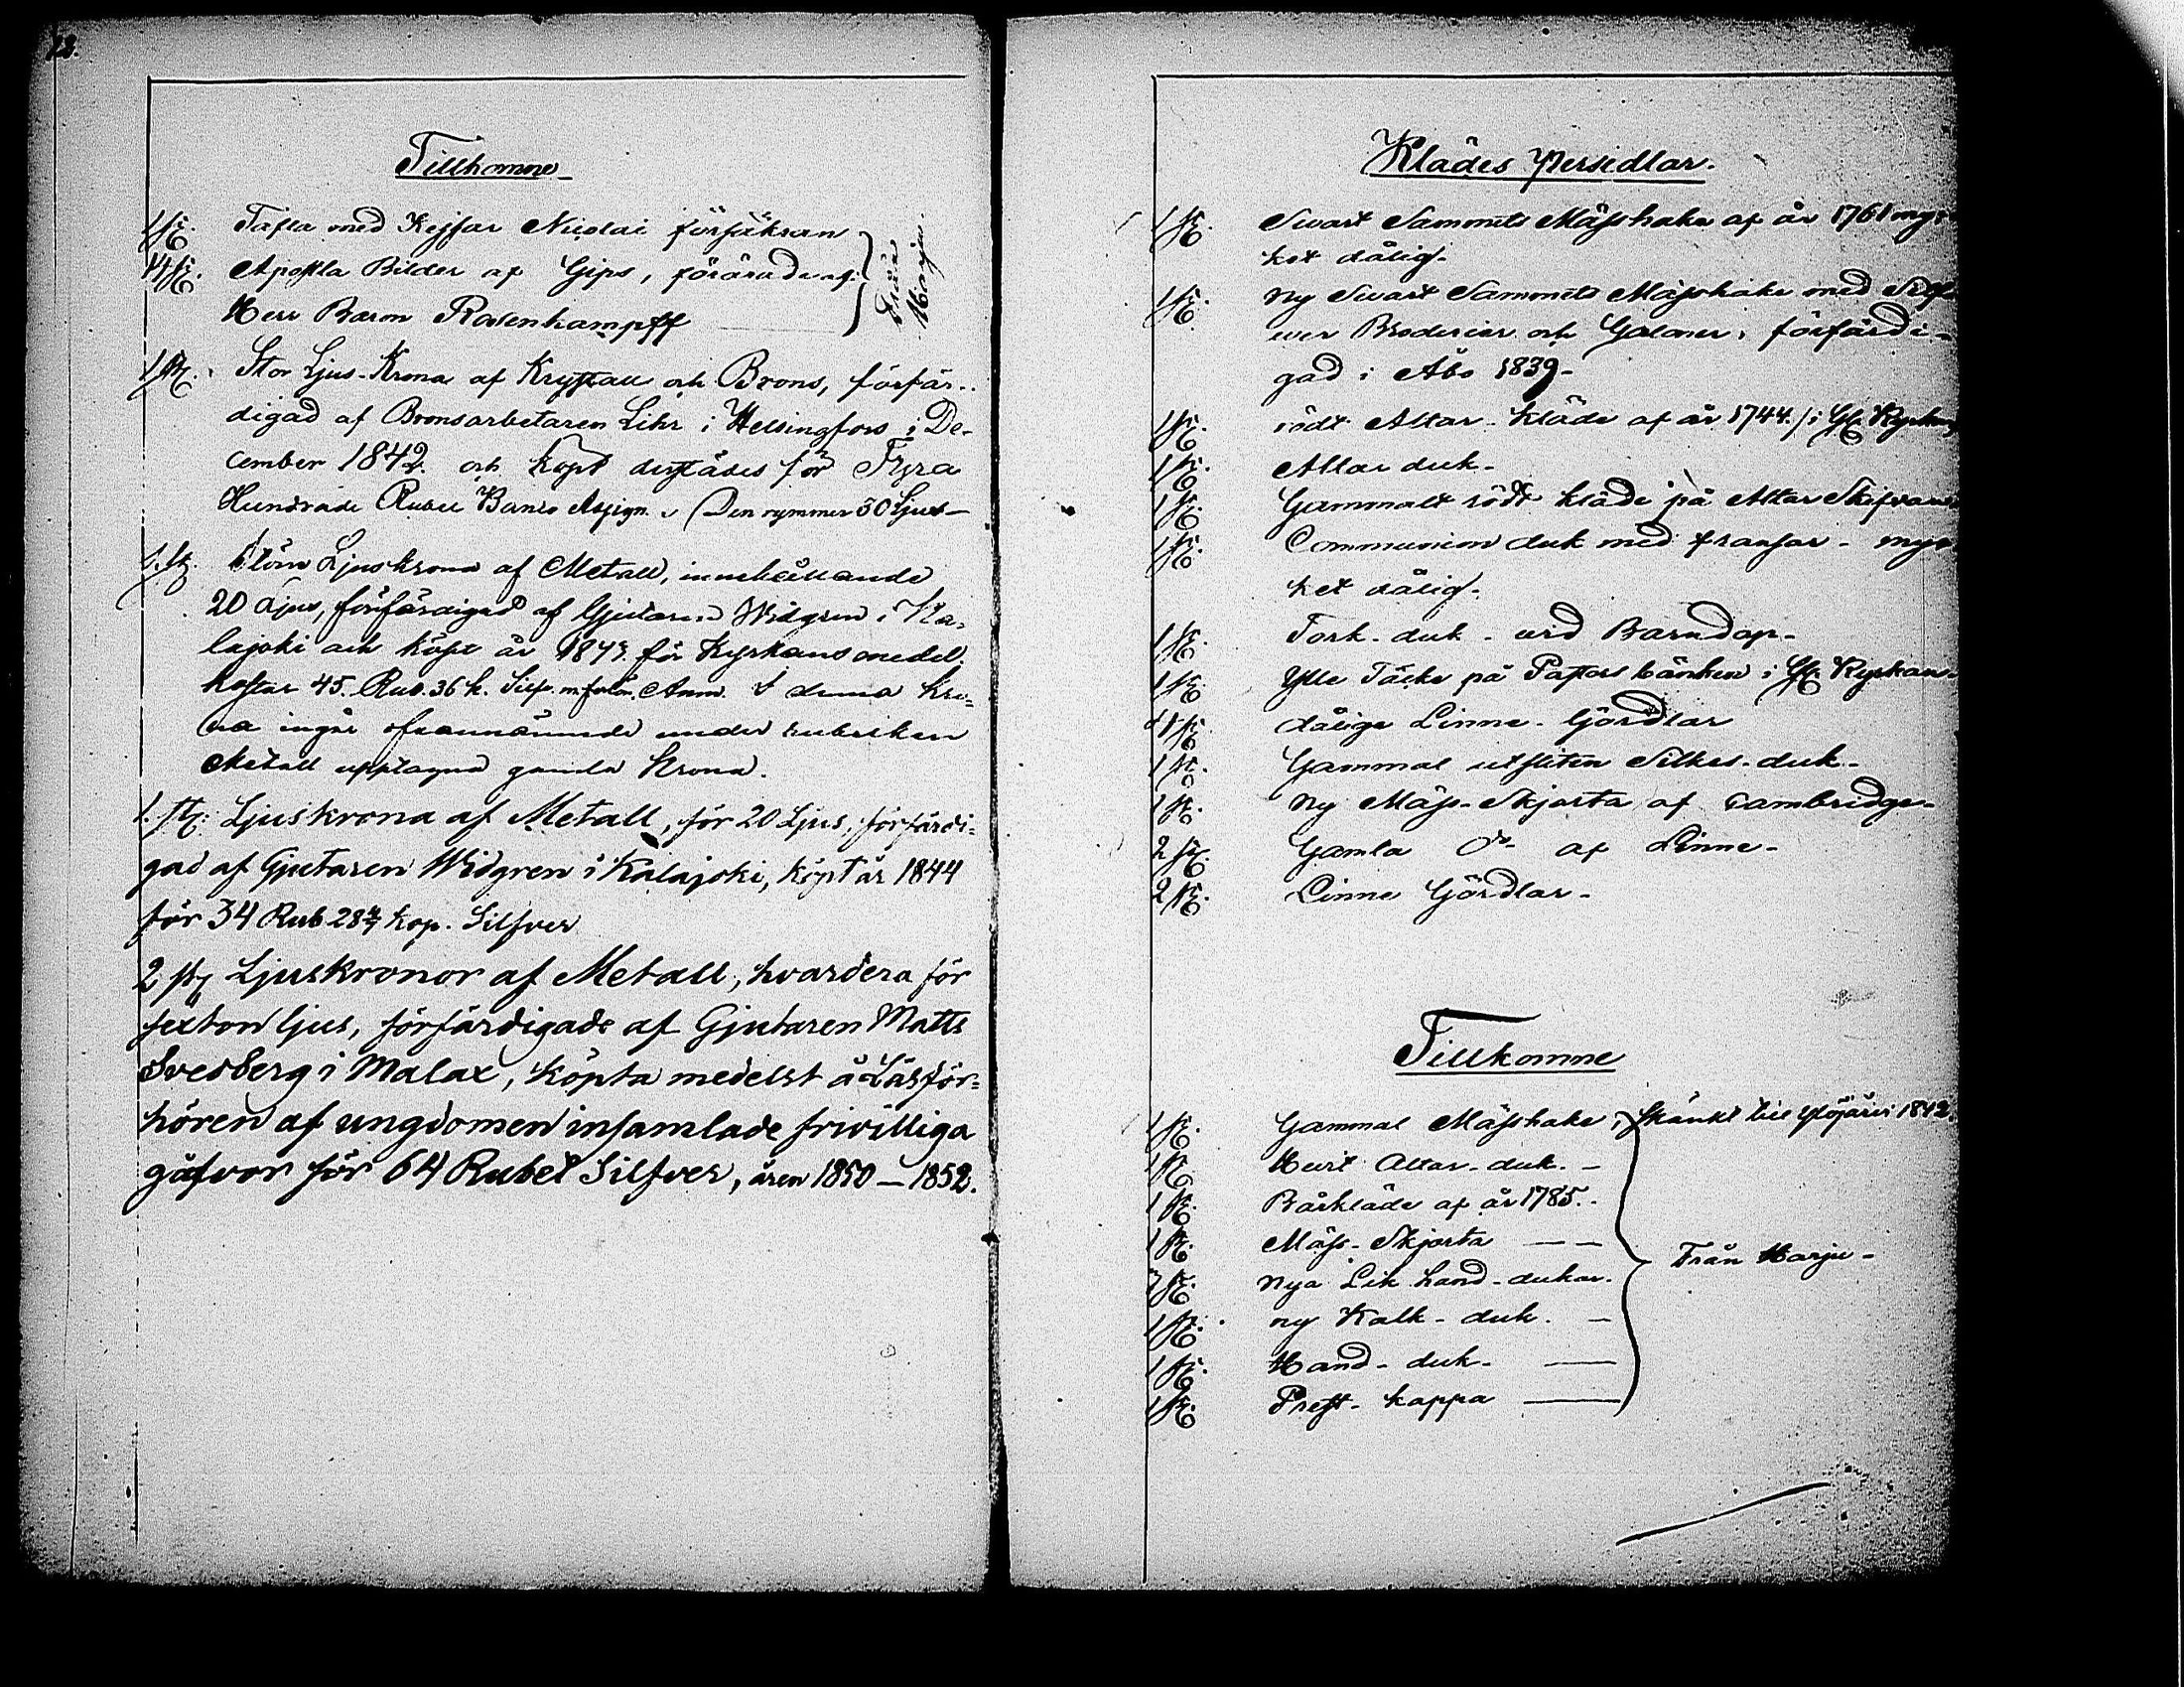 12.
Tillkomne
1 st. Tafla med Kejsar Nicolai försäkran
14 st. Apostla Bilder af Gips, förärade af
Herr Baron Rosenkampff
Från
Harju
1 st. Stor Ljus-Krona af Krystall och Brons, förfär-
digad af Bronsarbetaren Lihr i Helsingfors i De-
cember 1842. och köpt derstädes för Fyra
Hundrade Rubel Banco Assign. (Den rymmer 30 Ljus-
1 st. större Ljuskrona af Metall, innehållande
20 Ljus, förfärdigad af Gjutaren Widgren i Ka-
lajoki och köpt år 1843. för Kyrkans medel.
kostar 45. Rub. 36 k. Silf. Anm. I denna Kro-
na ingår ofvannämnde under rubriken
Metall upptagna gamla Krona.
1. st. Ljuskrona af Metall, för 20 Ljus, förfärdi-
gad af Gjutaren Widgren i Kalajoki, köpt år 1844
för 34 Rub 28 4/7 kop. Silfver
2 st Ljuskronor af Metall, hvardera för
sexton ljus, förfärdigade af Gjutaren Matts
Svedberg i Malax, köpta medelst å Läsför-
hören af ungdomen insamlade frivilliga
gåfvor för 64 Rubel Silfver, åren 1850 — 1852.
Klädes Persedlar.
1 st. Svart Sammets Mässhake af år 1761 myc
ket dålig-
1 st. ny Svart Sammets Mässhake med Silf
wer Broderier och Galoner, förfärdi-
gad i Åbo 1839-
1 st. rödt Altar-kläde af år 1744. / i Gl. Kyrkan
1 st. Altar duk-
1 st. Gammalt rödt kläde på Altar Skifvan
1 st. Communion duk med fransar - myc
ket dålig-
1 st. Tork-duk - wid Barndop-
1 st. Ylle Täcke på Pastors bänken i Gl. Kyrkan-
4 st. dålige Linne-Gördlar
1 st. Gammal utsliten Silkes-duk-
1 st. ny Mäss-Skjorta af Cambridge-
2 st. Gamla do af Linne-
2 st. Linne Gördlar-
Tillkomne
1 st. Gammal Mässhake, Skänkt till Ylöjärvi 1842.
1 st. Hvit Altar-duk. -
1 st. Bårkläde af år 1785. -
1 st. Mäss-Skjorta — —
3 st. nya Lik hand-dukar.
1 st. ny Kalk-duk. -
1 st. Hand-duk- —
1 st. Prest-kappa —
Från Harju-